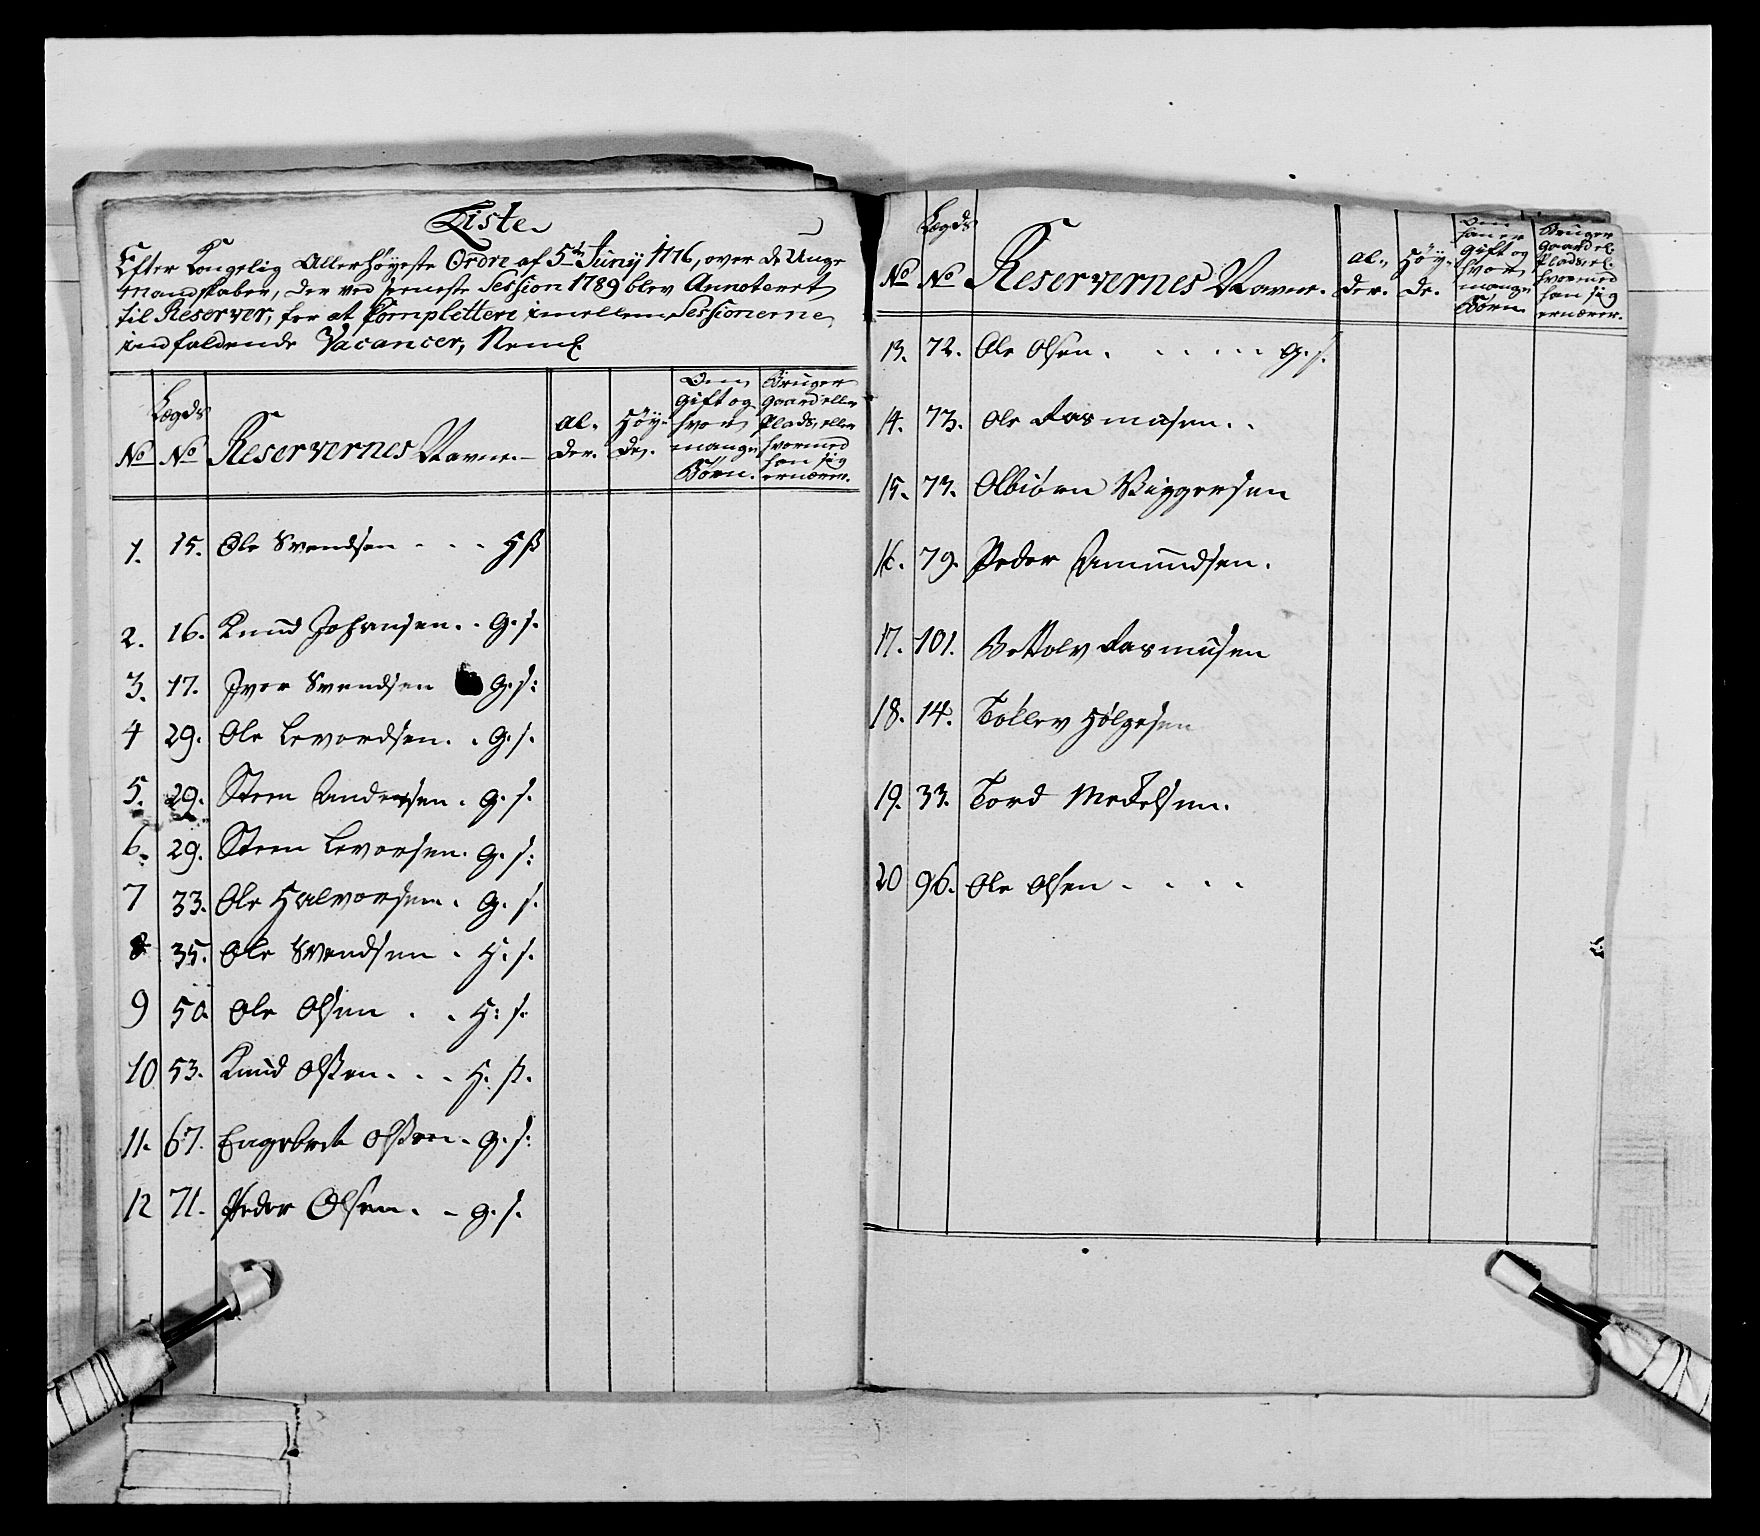 Liste
Efter Kongelig Allerhøyeste Ordre af 5te Junij 1776, over de Unge
Mandskaber, der ved seneste Session 1789 blev Annoteret
til Reserver, for at Complettere imellem Sessionerne
indfaldende Vacancer, Neml
No
Lægds No
Reservernes Navne.
Al-
der.
Høy-
de.
Om
gift og
hvor
mange
Børn.
Bruger
gaard eller
Plads, eller
hvormed
han sig
ernærer.
1. 15. Ole Svendsen - - - H ß
2. 16. Knud Johansen. - G. s.
3. 17. Iver Svendsen G. s:
4 29. Ole Levordsen. - G. s.
5. 29. Steen Andersen. G. s.
6. 29. Steen Levorsen. G. s:
7 33. Ole Halvorsen. G. s.
8 35. Ole Svendsen . H. s.
9 50. Ole Olsen . . H: s:
10 53. Knud Olßen. . - H. ß.
11. 67. Engebret Olßen. G. s:
12 71. Peder Olsen. - G. s.
No
Lægds
No
Reservernes Navne.
Al-
der.
Høy-
de.
Om
han er
gift og
hvor
mange
Børn.
Bruger
gaard el.
Plads, el.
hvormed
han sig
ernærer.
13. 72. Ole Olsen. - - - - G. s.
14. 73. Ole Rasmusen. .
15. 73. Olbiörn Viggersen
16. 79. Peder Amundsen.
17. 101. Bottolv Rasmusen
18. 14. Tollev Holgesen
19. 33. Tord Mekelsen.
20 96. Ole Olsen - - - -